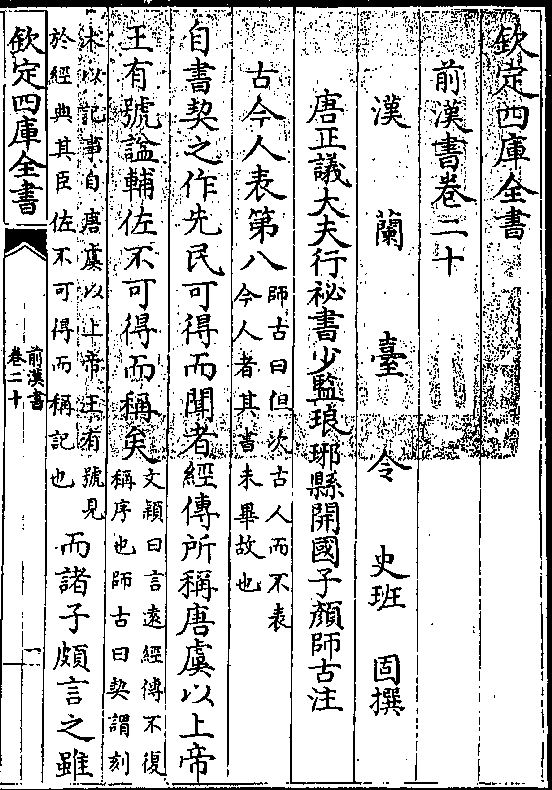 欽定四庫全書
前漢書卷二十
漢蘭臺令史班固撰
唐正議大夫行祕書少監琅邪縣開國子顏師古注
古今人表第八師古曰但次古人而不表今人者其書未畢故也
自書契之作先民可得而聞者經傳所稱唐虞以上帝
王有號諡輔佐不可得而稱矣文穎曰言遠經傳不復稱序也師古曰契謂刻
木以記事自唐虞以上帝王有號見於經典其臣佐不可得而稱記也而諸子頗言之雖
欽定四庫全書
前漢書
卷二十
一